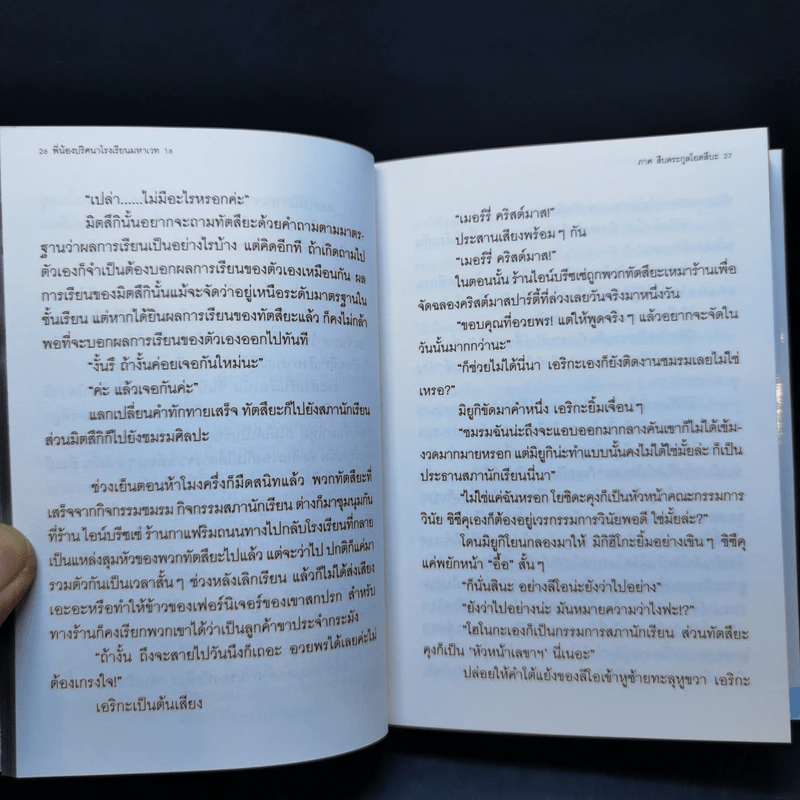 26 พี่น้องปริศนาโรงเรียนมหาเวท 16
"เปล่า......ไม่มีอะไรหรอกค่ะ"
มิตสึกินั้นอยากจะถามทัตสึยะด้วยคำถามตามมาตร-
ฐานว่าผลการเรียนเป็นอย่างไรบ้าง แต่คิดอีกที ถ้าเกิดถามไป
ตัวเองก็จำเป็นต้องบอกผลการเรียนของตัวเองเหมือนกัน ผล
การเรียนของมิตสึกินั้นแม้จะจัดว่าอยู่เหนือระดับมาตรฐานใน
ชั้นเรียน แต่หากได้ยินผลการเรียนของทัตสึยะแล้ว ก็คงไม่กล้า
พอที่จะบอกผลการเรียนของตัวเองออกไปทันที
"งั้นรึ ถ้างั้นค่อยเจอกันใหม่นะ"
"ค่ะ แล้วเจอกันค่ะ"
แลกเปลี่ยนคำทักทายเสร็จ ทัตสึยะก็ไปยังสภานักเรียน
ส่วนมิตสึกิก็ไปยังชมรมศิลปะ
ช่วงเย็นตอนห้าโมงครึ่งก็มืดสนิทแล้ว พวกทัตสึยะที่
เสร็จจากกิจกรรมชมรม กิจกรรมสภานักเรียน ต่างก็มาชุมนุมกัน
ที่ร้าน ไอน์บรีซเซ่ ร้านกาแฟริมถนนทางไปกลับโรงเรียนที่กลาย
เป็นแหล่งสุมหัวของพวกทัตสึยะไปแล้ว แต่จะว่าไป ปกติก็แค่มา
รวมตัวกันเป็นเวลาสั้นๆ ช่วงหลังเลิกเรียน แล้วก็ไม่ได้ส่งเสียง
เอะอะหรือทำให้ข้าวของเฟอร์นิเจอร์ของเขาสกปรก สำหรับ
ทางร้านก็คงเรียกพวกเขาได้ว่าเป็นลูกค้าขาประจำกระมัง
"ถ้างั้น ถึงจะสายไปวันนึงก็เถอะ อวยพรได้เลยค่ะไม่
ต้องเกรงใจ!"
เอริกะเป็นต้นเสียง
ภาค สืบตระกูลโยตสึบะ 27
"เมอร์รี่ คริสต์มาส!"
ประสานเสียงพร้อมๆ กัน
"เมอร์รี่ คริสต์มาส!"
ในตอนนั้น ร้านไอน์บรีซเซ่ถูกพวกทัตสึยะเหมาร้านเพื่อ
จัดฉลองคริสต์มาสปาร์ตี้ที่ล่วงเลยวันจริงมาหนึ่งวัน
"ขอบคุณที่อวยพร! แต่ให้พูดจริงๆ แล้วอยากจะจัดใน
วันนั้นมากกว่านะ"
"ก็ช่วยไม่ได้นี่นา เอริกะเองก็ยังติดงานชมรมเลยไม่ใช่
เหรอ?"
มิยูกิขัดมาคำหนึ่ง เอริกะยิ้มเจื่อนๆ
"ชมรมฉันน่ะถึงจะแอบออกมากลางคันเขาก็ไม่ได้เข้ม-
งวดมากมายหรอก แต่มิยูกิน่ะทำแบบนั้นคงไม่ได้ใช่มั้ยล่ะ ก็เป็น
ประธานสภานักเรียนนี่นา"
"ไม่ใช่แค่ฉันหรอก โยชิดะคุงก็เป็นหัวหน้าคณะกรรมการ
วินัย ชิซึคุเองก็ต้องอยู่เวรกรรมการวินัยพอดี ใช่มั้ยล่ะ?"
โดนมิยูกิโยนกลองมาให้ มิกิฮิโกะยิ้มอย่างเขินๆ ชิซึคุ
แค่พยักหน้า "อื้อ" สั้นๆ
"ก็นั่นสินะ อย่างลีโอน่ะยังว่าไปอย่าง"
"ยังว่าไปอย่างน่ะ มันหมายความว่าไงฟะ!?"
"โฮโนกะเองก็เป็นกรรมการสภานักเรียน ส่วนทัตสึยะ
คุงก็เป็น 'หัวหน้าเลขาฯ' นี่เนอะ"
ปล่อยให้คำโต้แย้งของลีโอเข้าหูซ้ายทะลุหูขวา เอริกะ